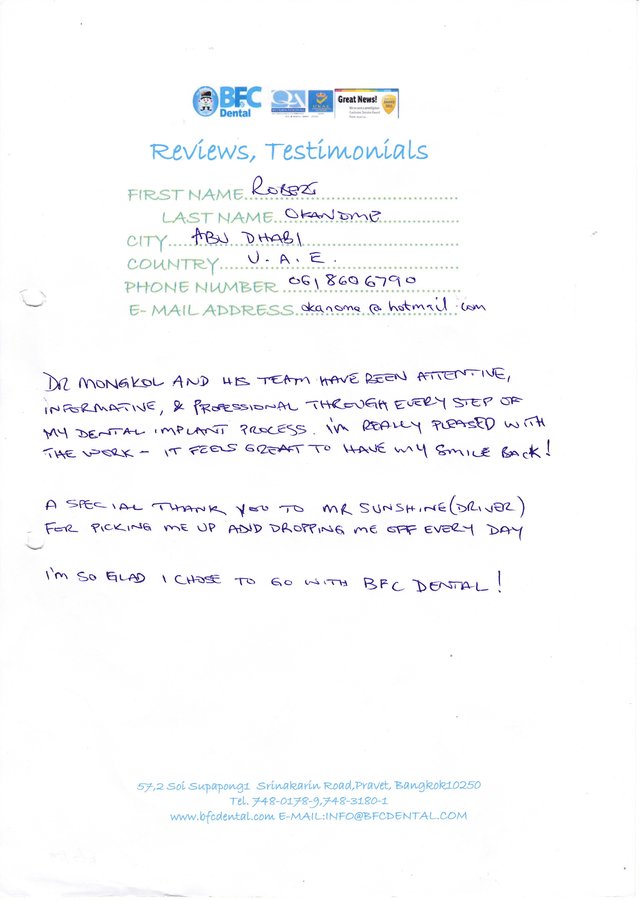 BFC Dental
QA
Great News!
Reviews, Testimonials
FIRST NAME ROBERT
LAST NAME OKANOME
CITY ABU DHABI
COUNTRY U.A.E.
PHONE NUMBER 0618606790
E-MAIL ADDRESS okanome@hotmail.com
DR MONGKOL AND HIS TEAM HAVE BEEN ATTENTIVE,
INFORMATIVE, & PROFESSIONAL THROUGH EVERY STEP OF
MY DENTAL IMPLANT PROCESS. I'M REALLY PLEASED WITH
THE WORK - IT FEELS GREAT TO HAVE MY SMILE BACK!
A SPECIAL THANK YOU TO MR SUNSHINE (DRIVER)
FOR PICKING ME UP AND DROPPING ME OFF EVERY DAY
I'M SO GLAD I CHOSE TO GO WITH BFC DENTAL!
57,2 Soi Supapong1 Srinakarin Road,Pravet, Bangkok10250
Tel. 748-0178-9,748-3180-1
www.bfcdental.com E-MAIL:INFO@BFCDENTAL.COM